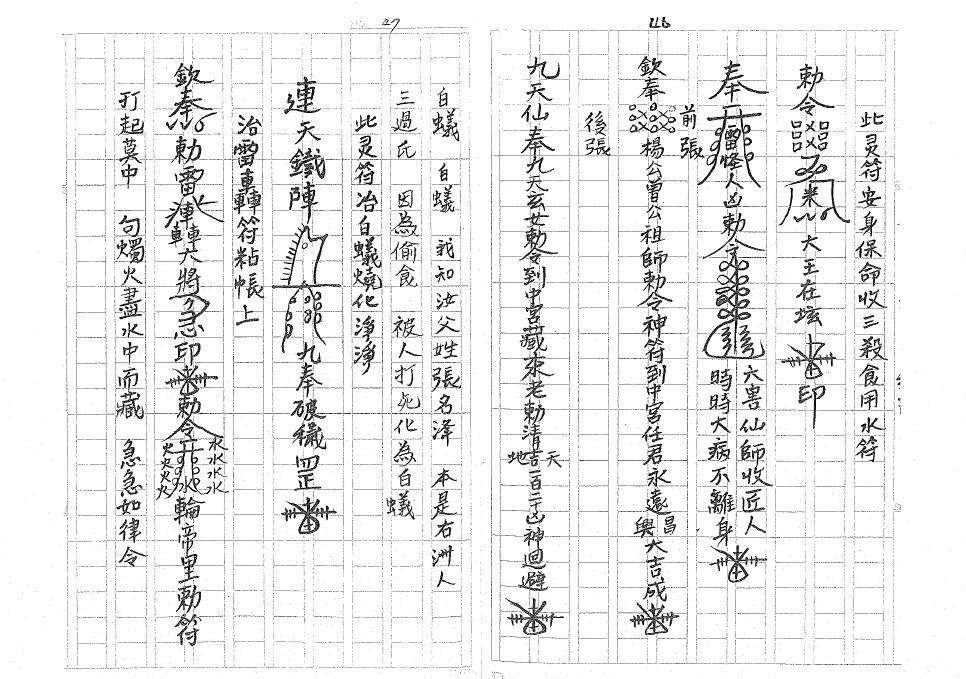 116
此灵符安身保命收三殺食用水符
勅令 大王在坛 印
奉 雷 人凶勅令 六害仙師收匠人
時時大病不離身
前張
欽奉 楊公曾公祖師勅令神符到中宮任君永遠昌
興大吉成
後張
九天仙奉九天玄女勅令到中宮藏來老勅清吉一百二十凶神迴避
天
地
27
白蟻 白蟻 我知汝父姓張名泽 本是右洲人
三過氏 因為偷食 被人打死化為白蟻
此灵符冶白蟻燒化淨淨
連天鐵陣 九奉破穢罡
治雷轟符粘帳上
欽奉 勅雷 大將 急印 勅令 輪帝里勅符
水水水水
火火火火
打起莫中 句燭火盡水中而藏 急急如律令